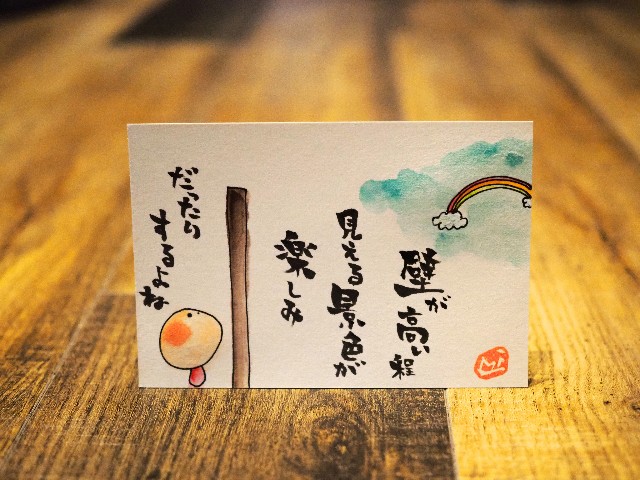 壁が高い程
見える景色が
楽しみ
だったり
するよね